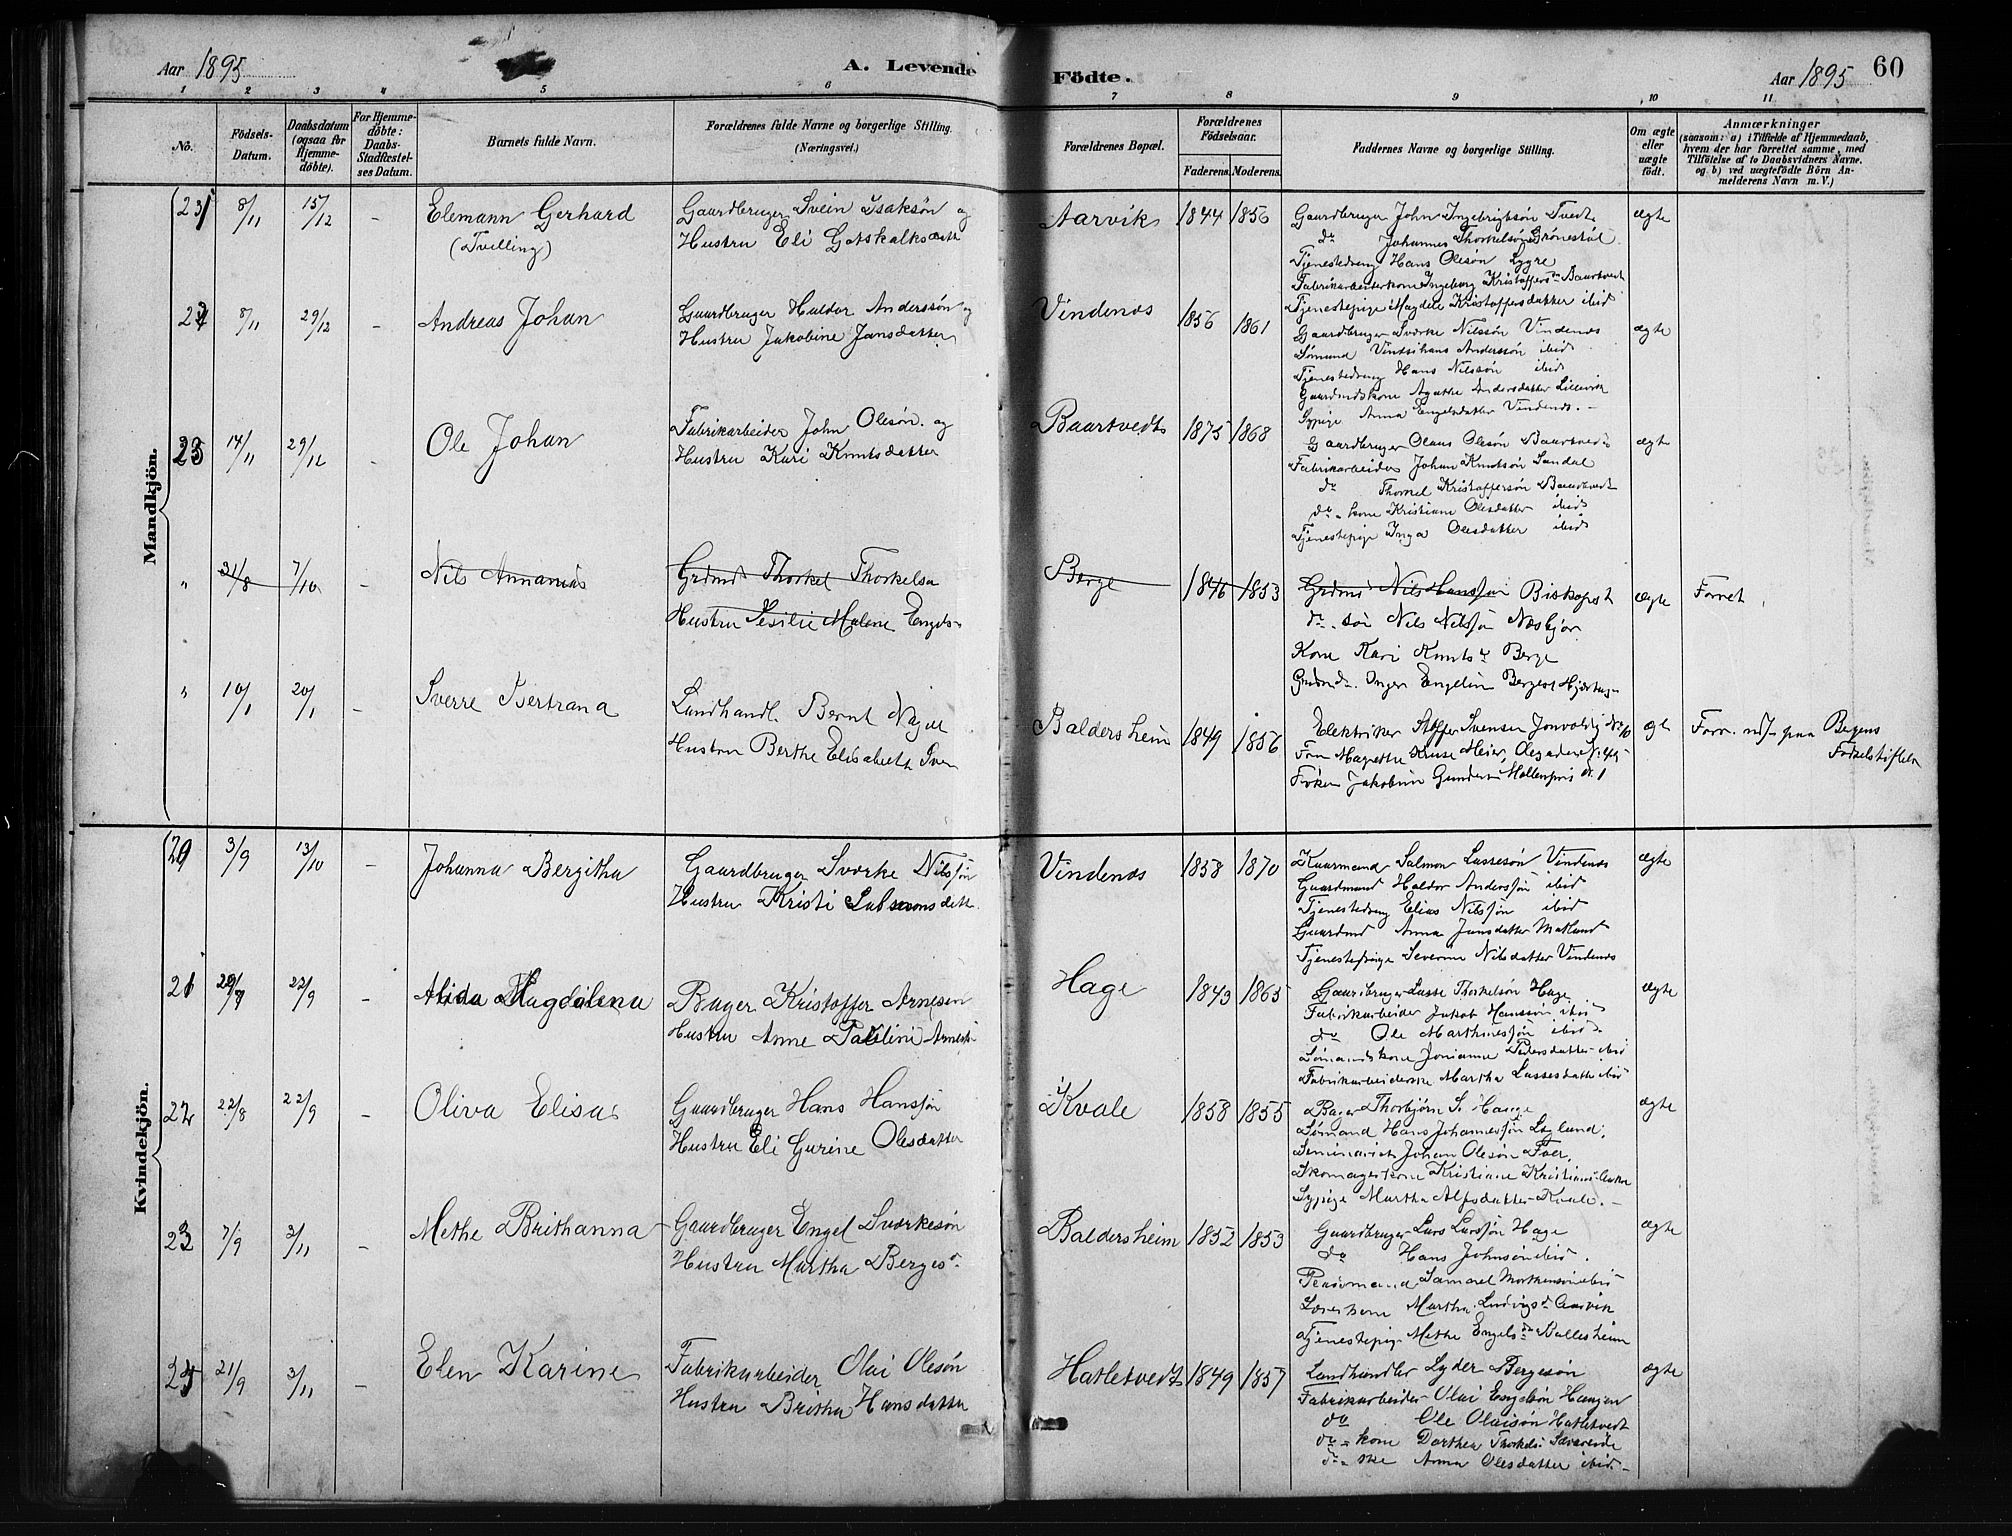 Aar 1895
A. Levende Födte.
Aar 1895
60
1 2 3 4 5 6 7 8 9 10 11
No.
Födsels-Datum.
Daabsdatum (ogsaa for Hjemme-döbte).
For Hjemme-döbte: Daabs-Stadfæstel-ses Datum.
Barnets fulde Navn.
Forældrenes fulde Navne og borgerlige Stilling. (Næringsvei.)
Forældrenes Bopæl.
Forældrenes Födselsaar.
Faderens. Moderens.
Faddernes Navne og borgerlige Stilling.
Om ægte eller uægte födt.
Anmærkninger
(saasom: a) i Tilfælde af Hjemmedaab,
hvem der har forrettet samme, med
Tilföielse af to Daabsvidners Navne.
og b) ved uægtefödte Börn An-
melderens Navn m. V.)
Mandkjön.
21 8/11 15/12 - Elemann Gerhard
(Tvilling)
Gaardbruger Svein Isaksøn og
Hustru Eli Gotskalksdattr
Aarvik 1844 1856
Gaardbruger John Ingebrigtsøn Tvedt
do Johannes Thorkelsøn Grönestöl
Tjenestedreng Hans Olesøn Lygre
Fabrikarbeiderkone Ingeborg Kristoffersdr Baartvedt
Tjenestepige Magdele Kristoffersdatter ibid
ægte
22 8/11 29/12 - Andreas Johan
Gaardbruger Haldor Anderssøn og
Hustru Jakobine Jansdatter
Vindenes 1856 1861
Gaardbruger Sverke Nilssøn Vindenes
Sømand Anderssøn ibid
Tjenestedreng Hans Nilssøn ibid
Gaardmdskone Agathe Andersdatter Lillevik
Sypige Anna Engelsdatter Vindenes. -
ægte
23 14/11 29/12 - Ole Johan
Fabrikarbeider John Olesøn. og
Hustru Kari Knutsdatter
Baartvedt 1875 1868
Gaardbruger Olaus Olesøn Baartvedt
Fabrikarbeider Johan Knutsøn Sandal
do Thorkel Kristoffersøn Baartvedt
do - kone Kristiane Olesdatter ibid
Tjenestepige Inga Olesdatter ibid
ægte
" 31/8 7/10 - Nils Annanias
Grdmd Thorkel Thorkelsn
Hustru Sesilie Malene Engels-
Berge 1846 1853
Grdmd Nils Hanssøn Biskopst
do. søn Nils Nilssøn Nesbjør
Kone Kari Knutsdr Berge
Inger Engeline Berges
ægte Forret
" 10/1 20/1 - Sverre Bertrand
Landhandl. Bernt Nagel
Hustru Berthe Elisabeth Iver
Baldersheim 1849 1856
Elektriker Svensen
Fru Magrethe Kruse Meier,
Frøken Jakobine Gunders Møllenpris No 1
ægt Forr. paa Bergens
Fødselstiftelse
Kvindekjön.
20 3/9 13/10 - Johanna Bergitha
Gaardbruger Sverke Nilssøn
Hustru Kristi Salomonsdatt.
Vindenes 1858 1870
Kaarmand Salmon Lassesøn Vindenes
Gaardmand Haldor Anderssøn ibid
Tjenestedreng Elias Nilssøn ibid
Gaardmd Anna Jansdatter Matland
Tjenestepige Severine Nilsdatter Vindenes
ægte
21 22/9 - Alida Magdalena
Bager Kristoffer Arnesen
Hustru Anne Pauline Arnesdr
Hage 1843 1865
Gaardbruger Lasse Thorkelsøn Hage
Fabrikarbeider Jakob Hanssøn ibid
do Ole Marthinessøn ibid
Sømandskone Jonianne Pedersdatter ibid
Fabrikarbeiderske Martha Lassesdatter ibid
ægte
22 22/8 22/9 - Oliva Elisa
Gaardbruger Hans Hanssøn
Hustru Eli Gurine Olesdatter
Kvale 1858 1855
Bager Thorbjørn S. Hauge
Sømand Hans Johannessøn Lygland,
Seminarist Johan Olesøn Foer,
Skomagerkone Kristiane Kristians-
Sypige Martha Alfsdatter Kvale. -
ægte
23 7/9 3/11 - Methe Brithanna
Gaardbruger Engel Sverkesøn
Hustru Martha Bergesdr
Baldersheim 1852 1853
Gaardbruger Lars Larssøn Hage
do Hans Johnsøn ibid.
Samuel Mortensøn ibid
Martha Ludvigsdr Aarvik
Tjenestepig. Methe Engelsdr Ballesheim
ægte
24 21/9 3/11 - Elen Karine
Fabrikarbeider Olai Olesøn
Hustru Britha Hansdatter
Hatletvedt 1849 1857
Landhandler Lyder Bergesøn
Fabrikarbeider Olai Engelsøn Haugen
do Ole Olaisøn Hatletvedt
do - kone Dorthea Thorkels. Sævareide
do - ske Anna Olesdatter ibid. -
ægte